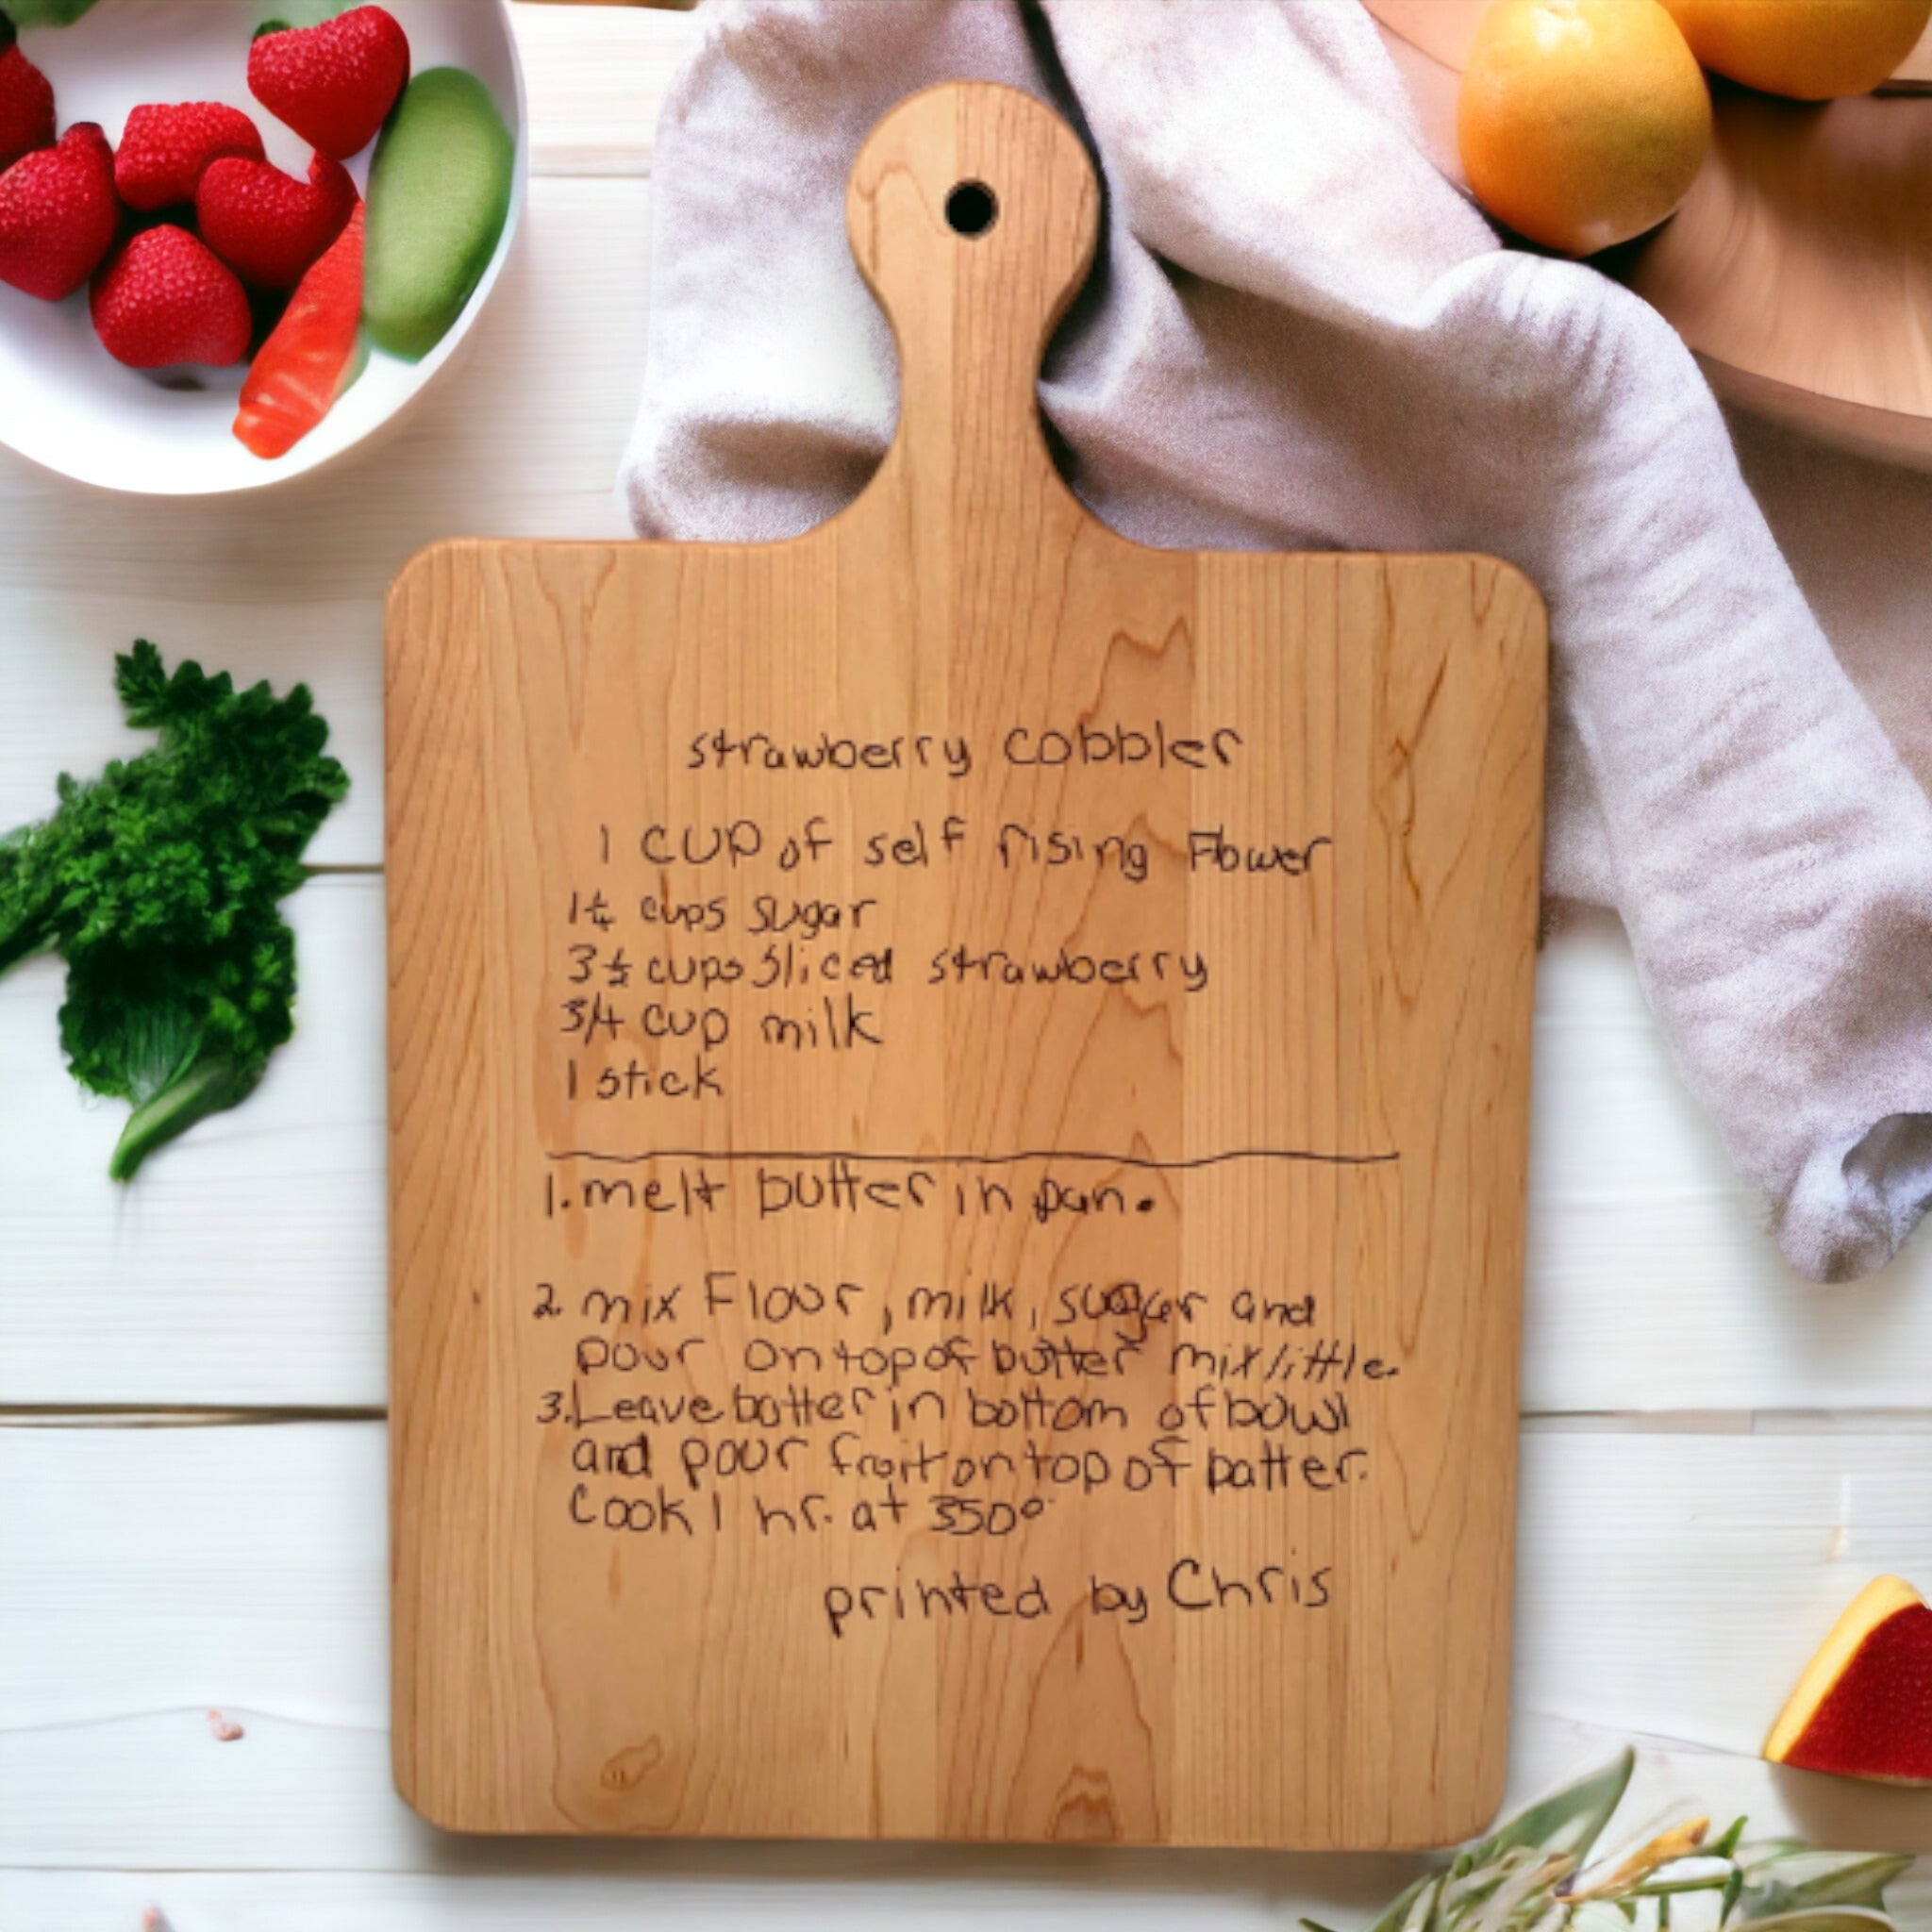 strawberry cobbler
1 cup of self rising Flower
1 1/4 cups sugar
3 1/2 cups sliced strawberry
3/4 cup milk
1 stick
1. melt butter in pan.
2. mix Flour, milk, sugar and
pour on top of butter mix little.
3. Leave batter in bottom of bowl
and pour fruit on top of batter.
Cook 1 hr. at 350°
printed by Chris